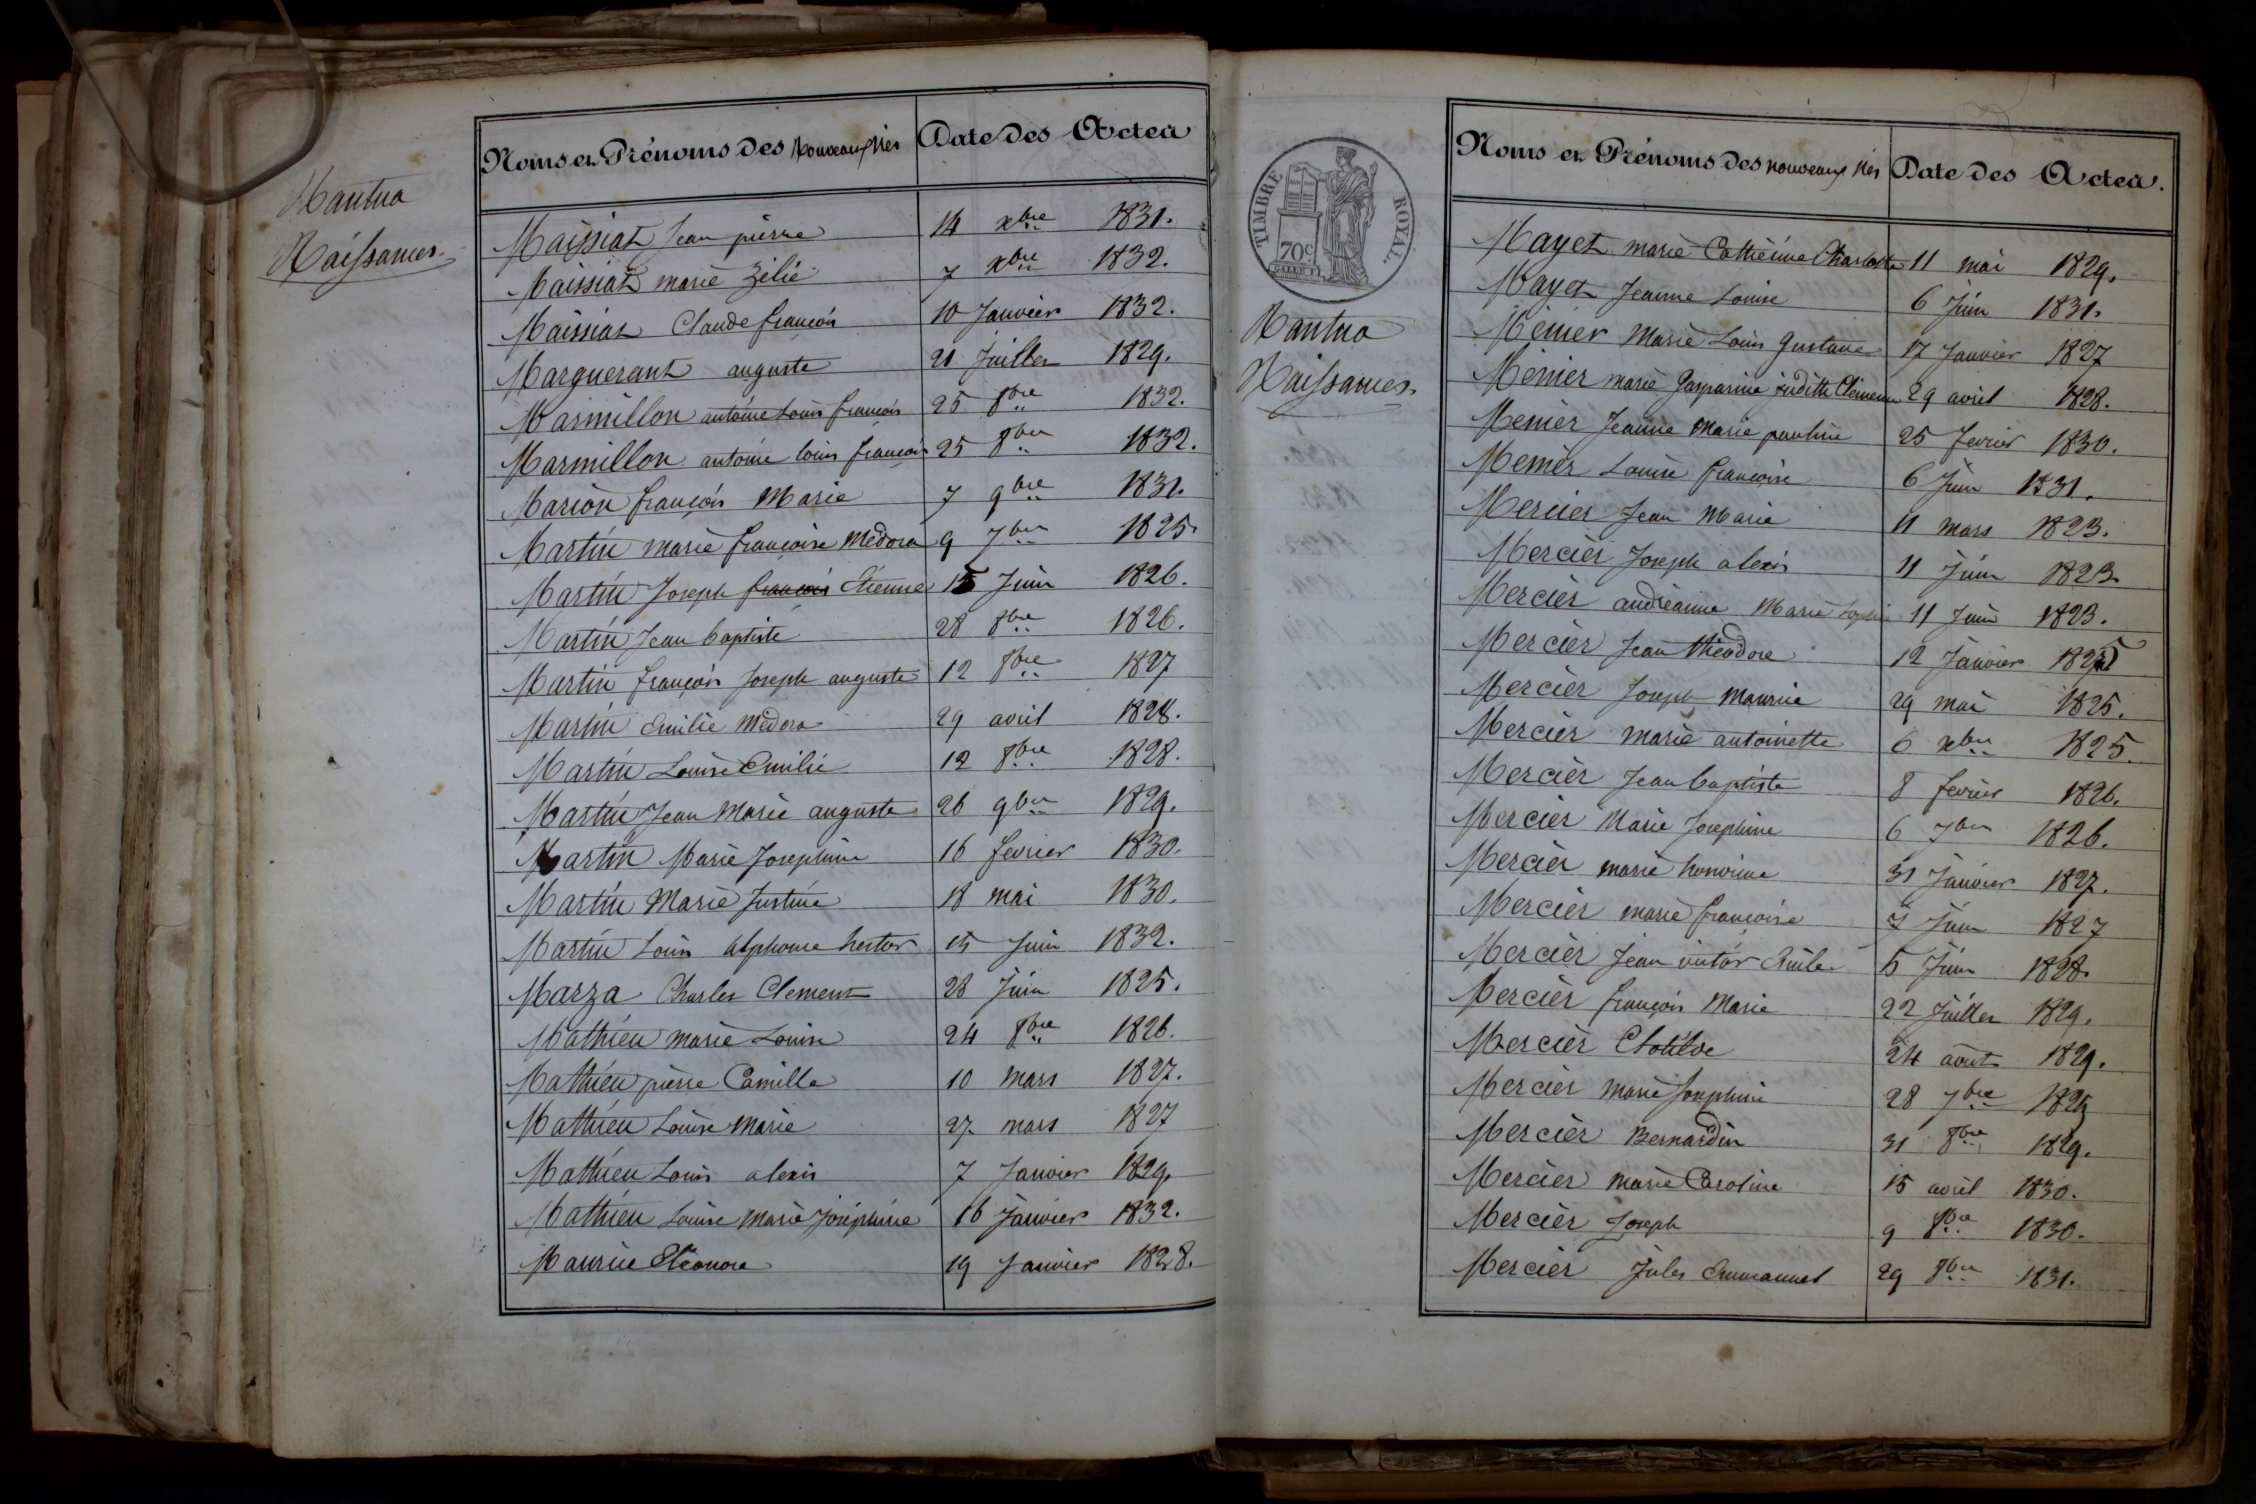 Nantua
Naissances.
Noms et Prénoms des nouveaux Nés Date des Actes
Maissiat Jean pierre 14 xbre 1831.
Maissiat marie Zélie 7 xbre 1832.
Maissiat Claude françois 10 Janvier 1832.
Marguerant auguste 21 Juillet 1829.
Marmillon antoine Louis françois 25 8bre 1832.
Marmillon antoine louis françois 25 8bre 1832.
Marion françois Marie 7 9bre 1831.
Martin marie françoise Médora 9 7bre 1825.
Martin Joseph françois Etienne 15 Juin 1826.
Martin Jean baptiste 28 8bre 1826.
Martin françois Joseph auguste 12 8bre 1827
Martin Emilie Médora 29 avril 1828.
Martin Louise Emilie 12 8bre 1828.
Martin Jean Marie auguste 26 9bre 1829.
Martin Marie Josephine 16 fevrier 1830.
Martin Marie Justine 18 mai 1830.
Martin Louis alphonse hector 15 Juin 1832.
Marza Charles Clement 28 Juin 1825.
Mathieu marie Louise 24 8bre 1826.
Mathieu pierre Camille 10 mars 1827.
Mathieu Louise Marie 27 mars 1827
Mathieu Louis alexis 7 Janvier 1829.
Mathieu Louise Marie Joséphine 16 Janvier 1832.
Maurice Eléonore 19 Janvier 1828.
TIMBRE ROYAL.
70c
Nantua
Naissances.
Noms et Prénoms des nouveaux Nés Date des Actes.
Mayet marie Cathérine Charlotte 11 mai 1829.
Mayet Jeanne Louise 6 Juin 1831.
Ménier Marie Louis Gustave 17 Janvier 1827
Ménier marie Gasparine judith Clémence 29 avril 1828.
Menier Jeanne Marie pauline 25 fevrier 1830.
Menier Louise françoise 6 Juin 1831.
Mercier Jean Marie 11 mars 1823.
Mercier Joseph alexis 11 Juin 1823.
Mercier andréanne Marie Sophie 11 Juin 1823.
Mercier Jean théodore 12 Janvier 1825
Mercier Joseph Maurice 29 mai 1825.
Mercier marie antoinette 6 xbre 1825.
Mercier Jean baptiste 8 fevrier 1826.
Mercier Marie Josephine 6 7bre 1826.
Mercier marie honorine 31 Janvier 1827.
Mercier marie françoise 7 Juin 1827
Mercier Jean victor Emile 5 Juin 1828.
Mercier françois Marie 22 Juillet 1829.
Mercier Clotilde 24 août 1829.
Mercier Marie Josephine 28 7bre 1829
Mercier Bernardin 31 8bre 1829.
Mercier marie Caroline 15 avril 1830.
Mercier Joseph 9 8bre 1830.
Mercier Jules Emmanuel 29 8bre 1831.